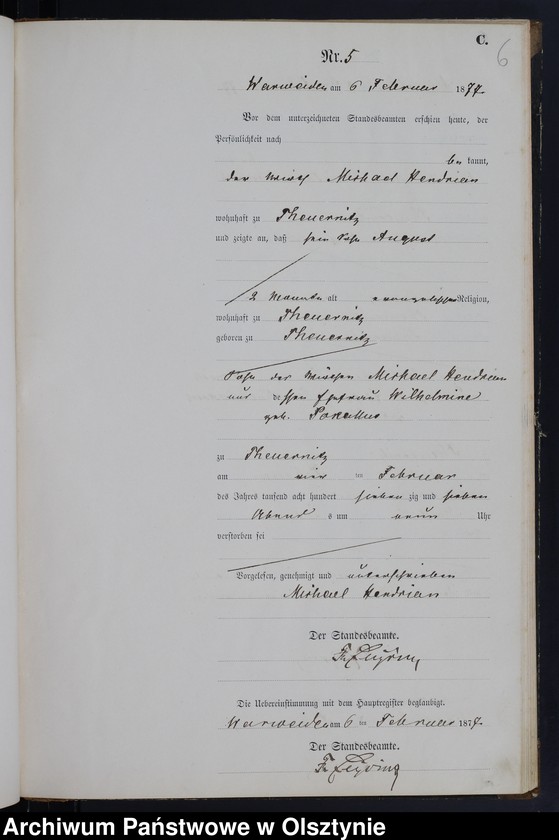 C.
6
Nr. 5
Warweiden am 6 Februar 1877.
Vor dem unterzeichneten Standesbeamten erschien heute, der
Persönlichkeit nach
be kannt,
der Wirth Michael Hendrian
wohnhaft zu Theuernitz
und zeigte an, daß sein Sohn August
2 Monate alt evangelischer Religion,
wohnhaft zu Theuernitz
geboren zu Theuernitz
Sohn des Michael Hendrian
und dessen Ehefrau Wilhelmine
geb.
zu Theuernitz
am vier ten Februar
des Jahres tausend acht hundert sieben zig und sieben
Abend s um neun Uhr
verstorben sei
Vorgelesen, genehmigt und unterschrieben
Michael Hendrian
Der Standesbeamte.
Die Uebereinstimmung mit dem Hauptregister beglaubigt.
Warweiden am 6 ten Februar 1877.
Der Standesbeamte.
Archiwum Państwowe w Olsztynie